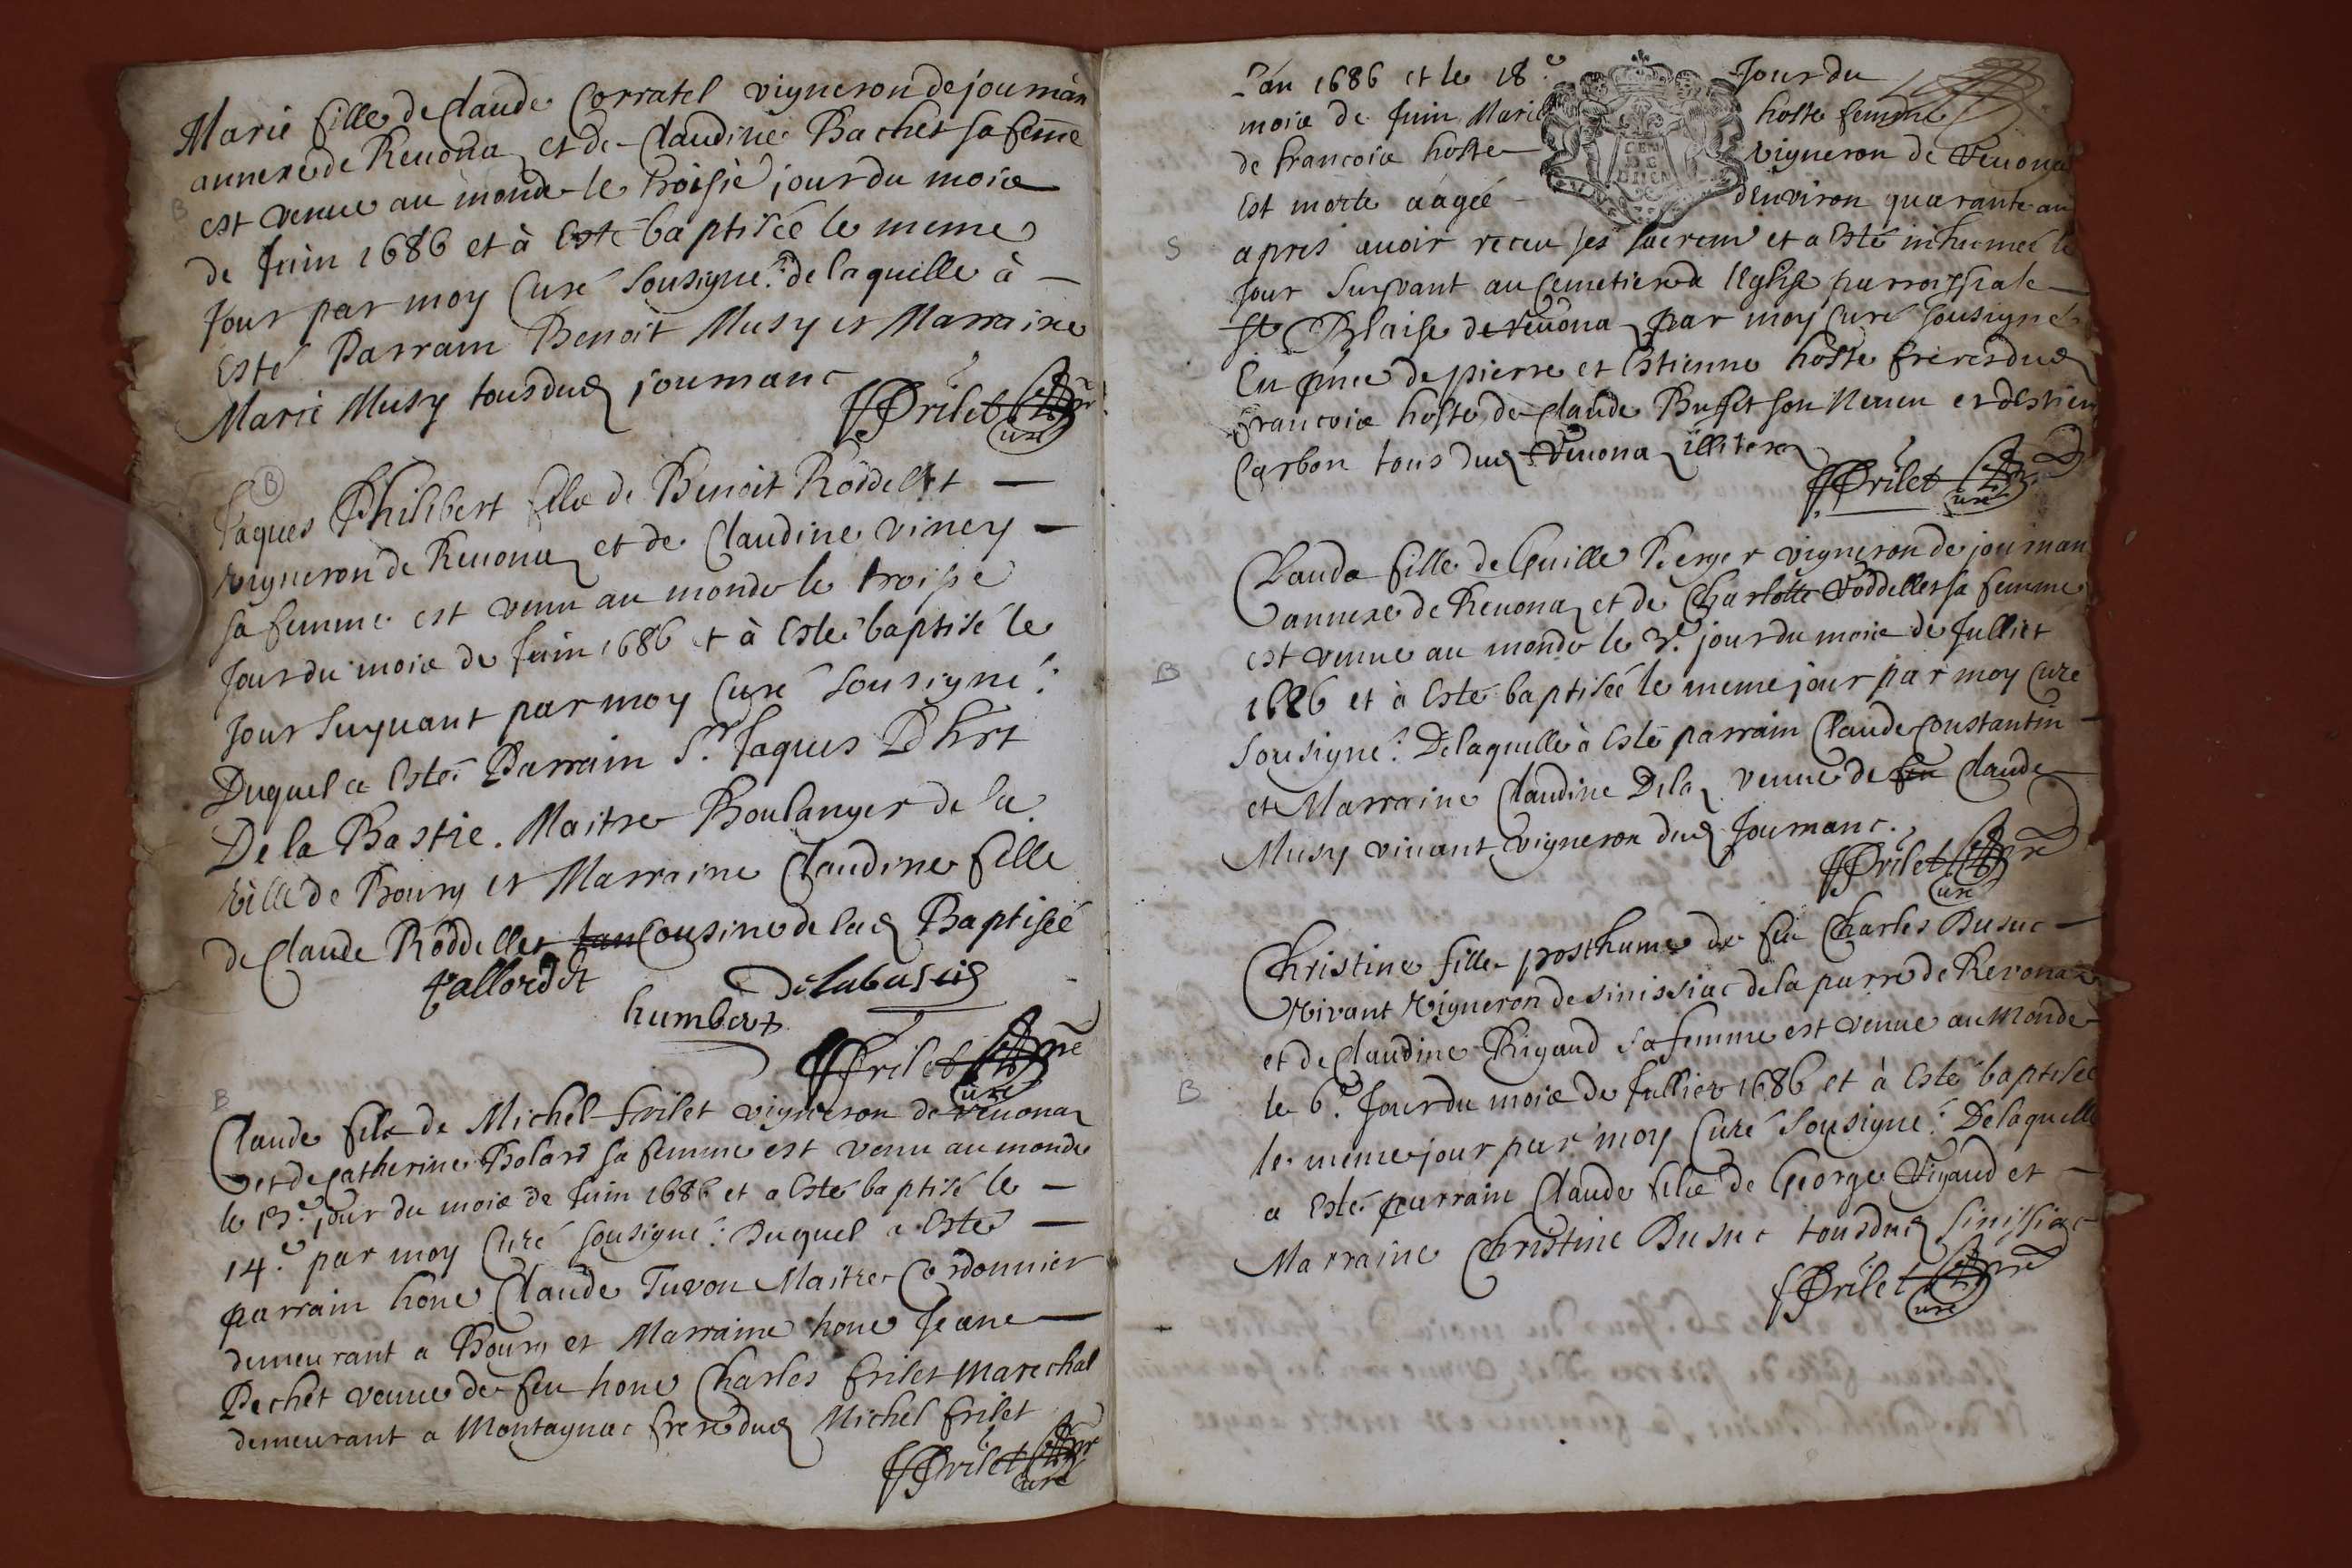 Marie fille de Claude Corratel vigneron de journàn
annexe de Reuona et de Claudine Bachet sa feme
B
est venue au monde le troisie jour du mois
de Juin 1686 et à esté baptisée le meme
Jour par moy Curé sousigné: de laquelle à
Esté Parrain Benoit Musy et Marraine
Marie Musy tous dud journanc
ffrilet
Curé
B
Jaques Philibert fils de Benoit Roddellet
vigneron de Reuona et de Claudine viney
sa femme est venu au monde le troisie
Jour du mois de Juin 1686 et à esté baptisé le
Jour suyuant par moy Curé sousigné:
Duquel a esté Parrain Sr. Jaques Phrt
De la Bastie. Maitre Boulanger de la
ville de Bourg et Marraine Claudine fille
de Claude Roddellet Cousine de lad Baptisée
Vallordet
Delabastie
humbert
ffrilet
Curé
B
Claude fils de Michel frilet vigneron de reuona
et de catherine Bolard sa femme est venu au monde
le 13.e jour du mois de Juin 1686 et a esté baptisé le
14.e par moy Curé sousigné: duquel a esté
parrain hone Claude Tuvon Maitre Cordonnier
demeurant a Bourg et Marraine hone Jeane
Pechet veuue de feu hone Charles frilet marechal
demeurant a Montagnac frere dud Michel frilet
ffrilet
Curé
L'an 1686 et le 18.e Jour du
mois de Juin Marie hoste femme
de francois hoste vigneron de Reuona
Est morte aagée d'environ quarante an
S
apres auoir receu ses sacrem et a esté inhumeé le
Jour Suyvant au Cemetiere de l'Eglise parroissiale
St Blaise de reuona par moy Curé sousigné
En pnce de pierre et Estienne hoste freres dud
francois hoste de Claude Buffet son Neueu et d'estien
Carbon tous dud Reuona illiteres
ffrilet
Curé
Clauda fille de Guille Berger vigneron de journan
annexe de Reuona et de Charlotte Roddellet sa femme
est venue au monde le 3.e jour du mois de Julliet
B
1686 et à esté baptisée le meme jour par moy Curé
sousigné: De laquelle à esté parrain Claude Constantin
et Marraine Claudine Dela veuue de feu Claude
Musy viuant vigneron dud Journanc.
ffrilet
Curé
Christine fille posthume de feu Charles Dusuc
Vivant Vigneron de sinissiac de la parre de Revona
et de Claudine Rigaud sa femme est venue au monde
B
le 6.e Jour du mois de Julliet 1686 et à esté baptisée
le meme jour par moy Curé sousigné: De laquelle
a esté parrain Claude fils de George Rigaud et
Marraine Christine Dusuc tous dud Sinissiac
ffrilet
Curé